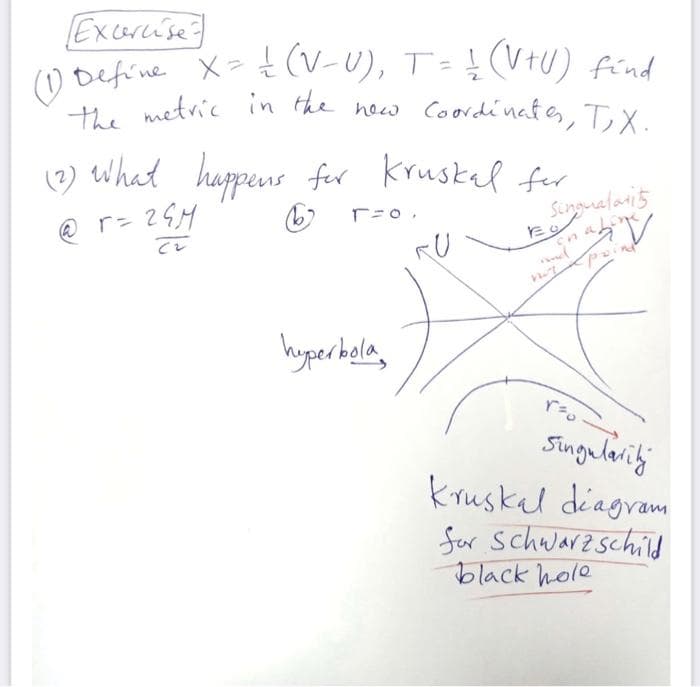 Excercise:
(1) Define X = 1/2 (V-U), T = 1/2 (V+U) find
the metric in the new coordinates, T, X.
(2) What happens for Kruskal for
(a) r = 2GM/c² (b) r=0.
Singualarity
on a line
and
not a point
r=0
U
V
hyperbola
r=0
Singularity
Kruskal diagram
for Schwarzschild
black hole